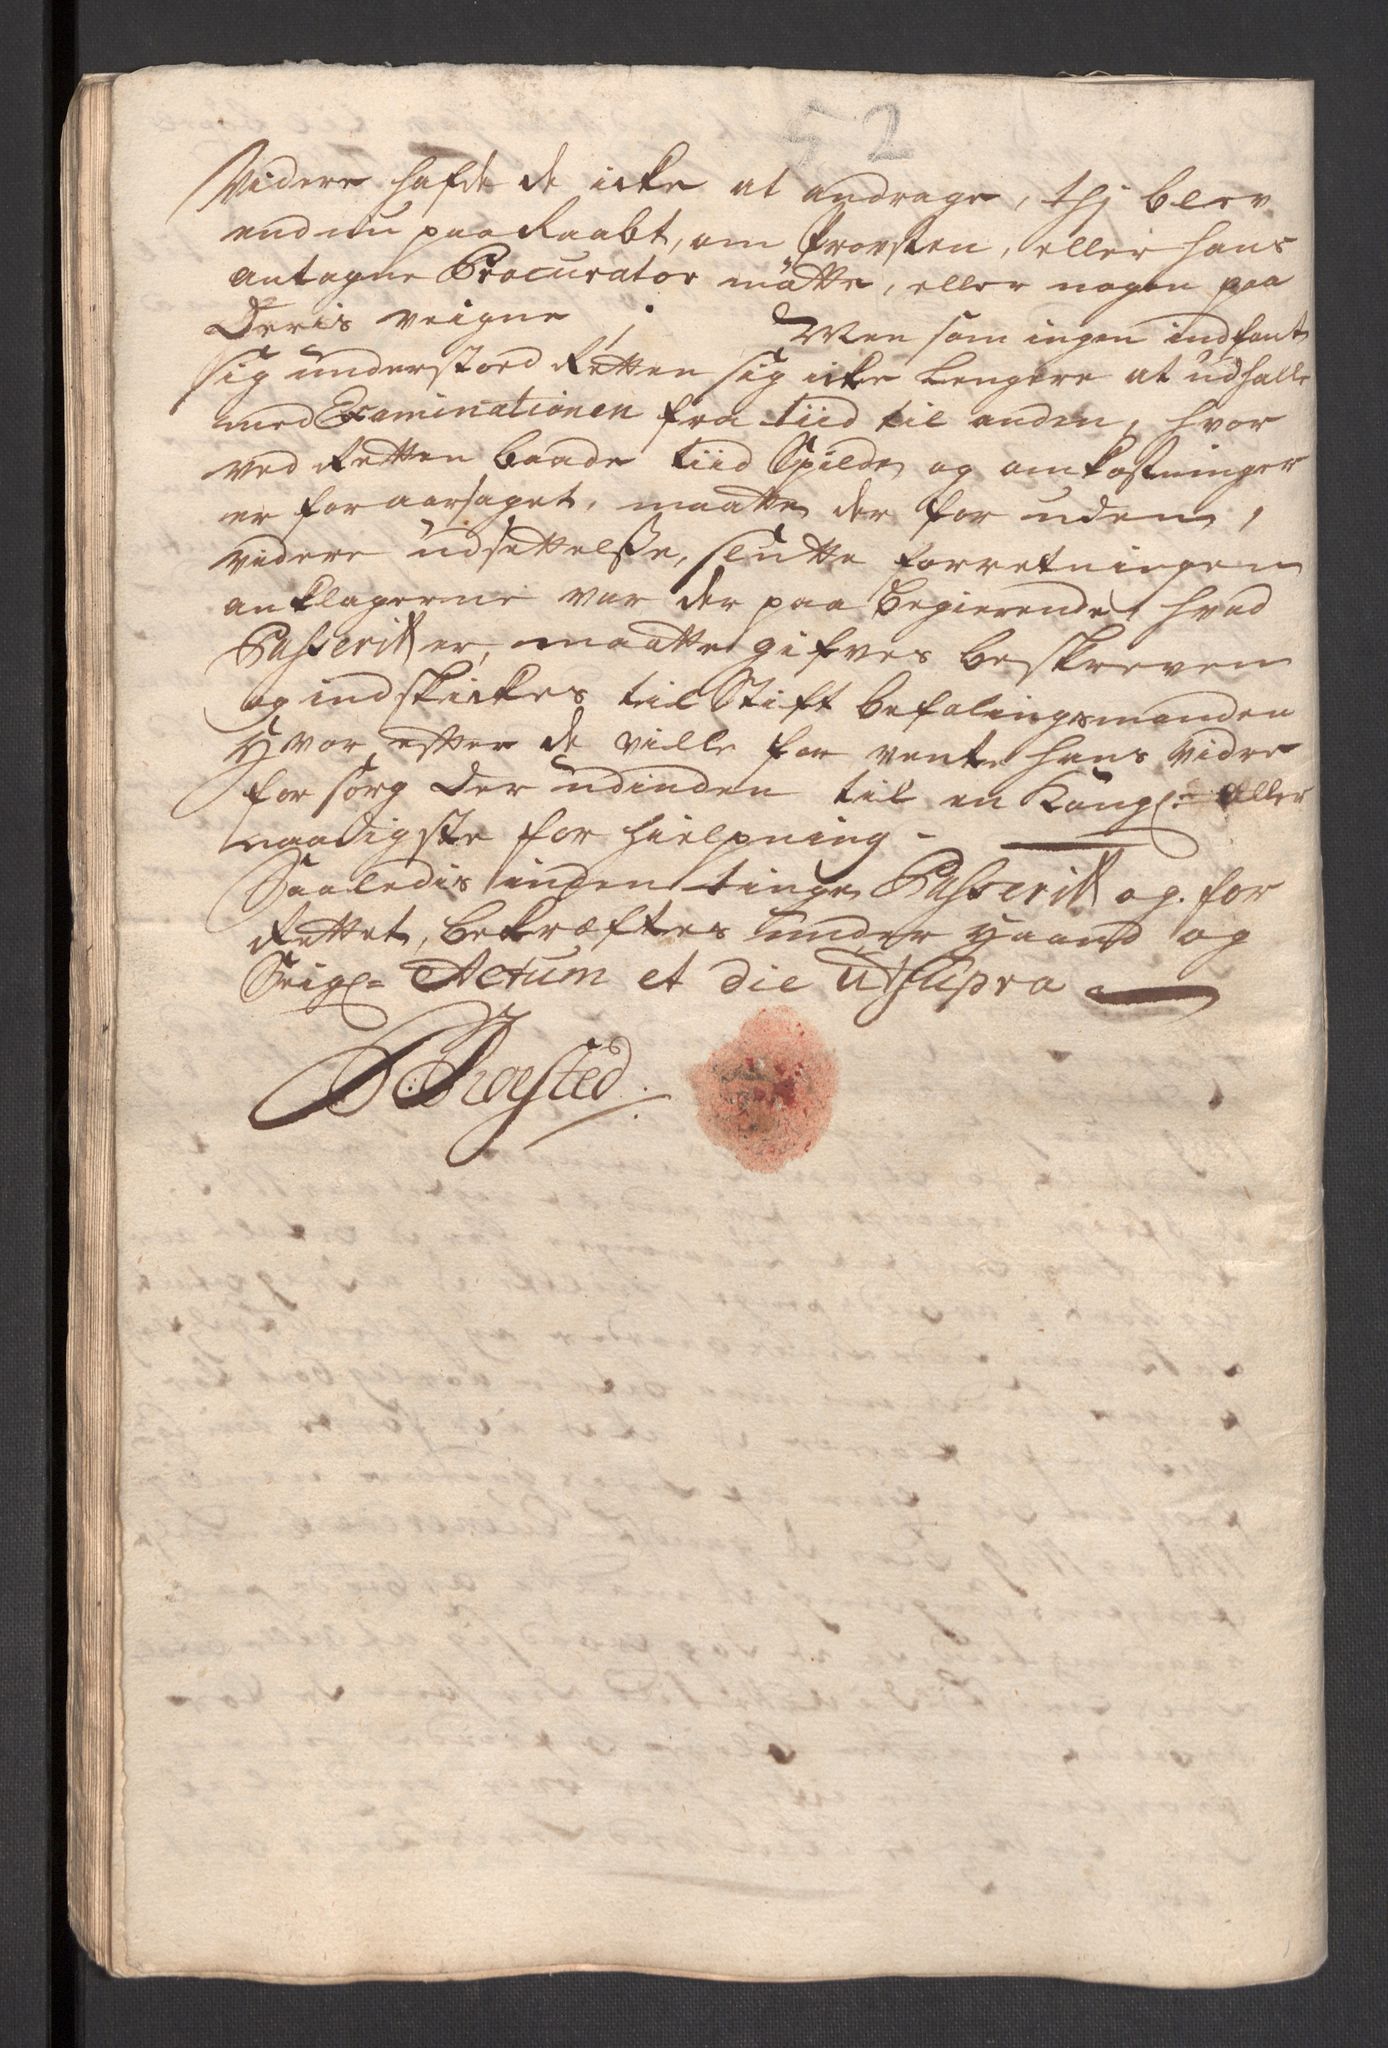 52
Videre hafde de icke at andrage, thj blev
endnu paaRaabt, om Provsten, eller hans
antagne Procurator møtte, eller nogen paa
Deris veigne; Men som ingen indfant
sig understoed Retten sig icke lengere at udhalle
med Examinationen fra tiid til anden, hvor
ved Retten baade tiid Spilde og omkostninger
er foraarsaget, maatte der for uden,
videre udsettelsse, slutte forretningen
anklagerne var der paa begierende, hvad
Passerit er, maatte gifves beskreven
og indskickes til Stift befalingsmanden
Hvor efter de ville for vente hans vidre
forsorg der udinden til en Kongl: aller
naadigste for hielpning -
Saaledis inden tinge Passerit og for
Rettet, bekræftes under Haand og
Seigl= Actum et die ut supra
Broested